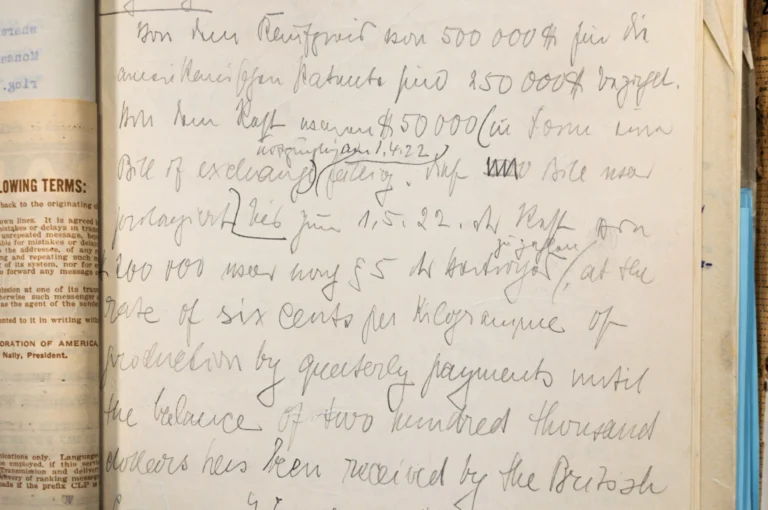 Von dem Kaufpreis von 500 000 $ für die
amerikanischen Patente sind 250 000 $ bezahlt.
Von dem Rest waren $ 50 000 (in Form einer
ursprünglich am 1.4.22
Bill of exchange) (fällig. Diese Bill war
prolongiert) bis zum 1.5.22. der Rest von
zu zahlen
$ 200 000 war nach § 5 des Vertrages (, at the
rate of six cents per Kilogramme of
production by quaterly payments until
the balance of two hundred thousand
dollars has been received by the British
LOWING TERMS:
back to the originating
own lines. It is agreed
mistakes or delays in trans
unrepeated message, bey
ble for mistakes or delays
the addressee, of any
ng and repeating such
of its system, nor for
forward any message
ission at one of its tran
herwise such messenger
as the agent of the sende
ented to it in writing with
ORATION OF AMERICA
Nally, President.
ications only. Language
e employed, if this servi
Transmission and deliver
livery of ranking message
eads if the prefix CLP is